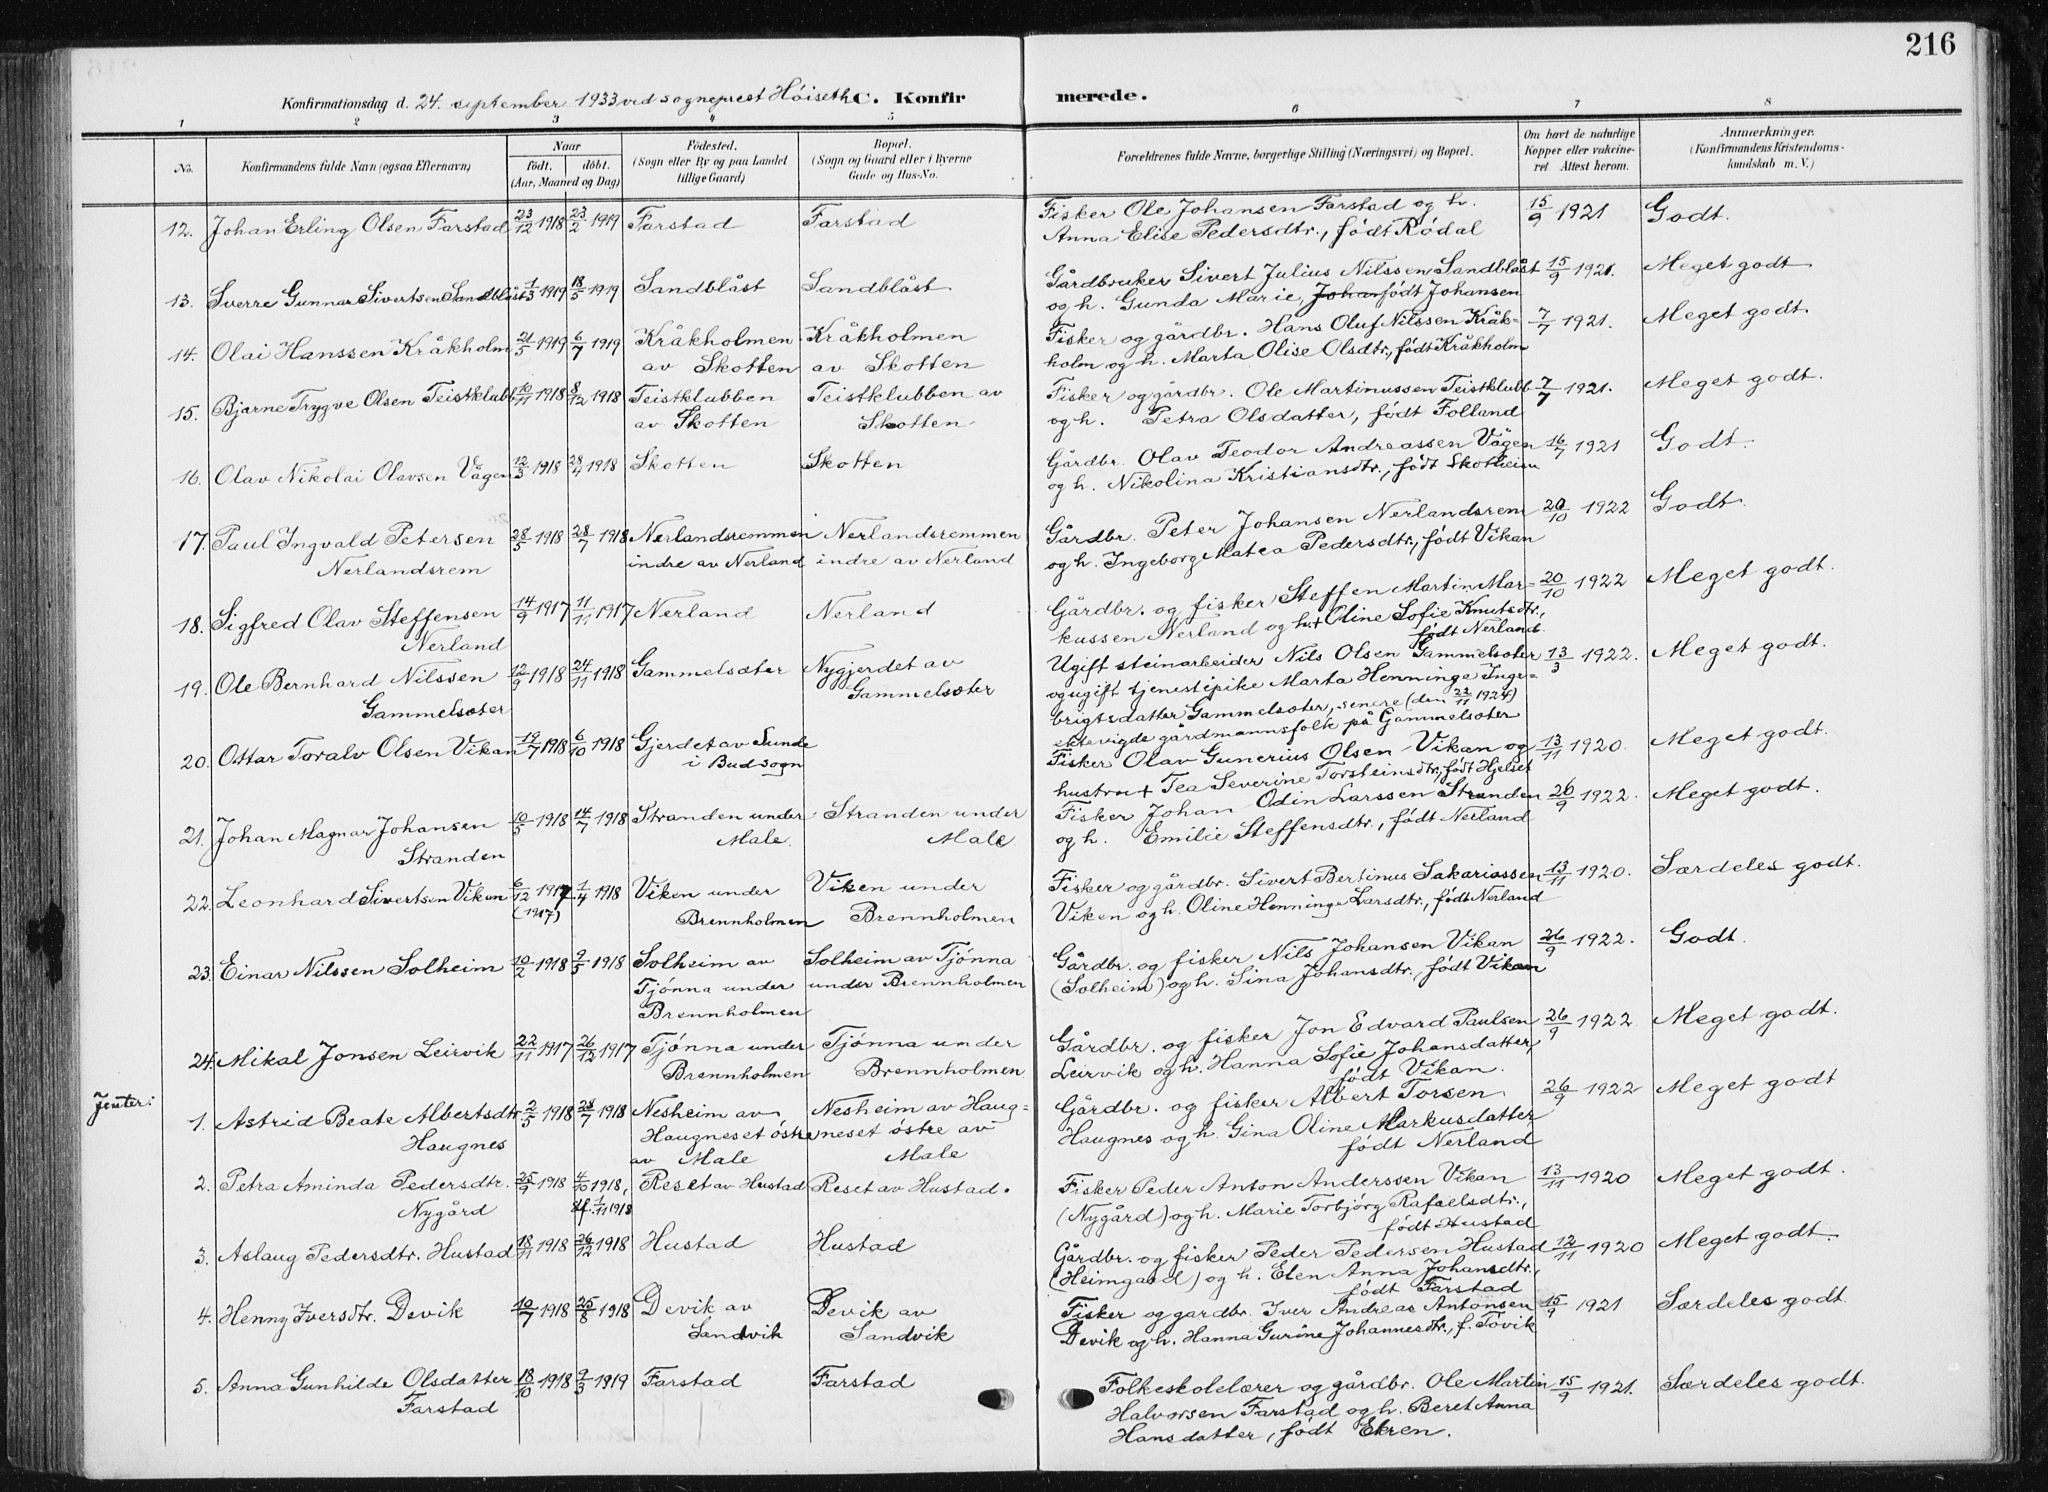 216
Konfirmationsdag d. 24. september 1933 ved sogneprest Höiseth C. Konfirmerede.
1 2 3 4 5 6 7 8
No. Konfirmandens fulde Navn (ogsaa Efternavn) Naar født. døbt. (Aar, Maaned og Dag) Fødested. (Sogn eller By og paa Landet tillige Gaard) Bopæl. (Sogn og Gaard eller i Byerne Gade og Hus-No. Forældrenes fulde Navne, borgerlige Stilling (Næringsvei) og Bopæl. Om havt de naturlige Kopper eller vakcineret Attest herom. Anmærkninger. (Konfirmandens Kristendomskundskab m. V.)
12. Johan Erling Olsen Farstad 23/12 1918 23/2 1919 Farstad Farstad Fisker Ole Johansen Farstad og h. 15/9 1921 Godt.
Anna Elise Pedersdtr., född Rödal
13. Sverre Gunnar Sivertsen Sandblåst 1/3 1919 18/5 1919 Sandblåst Sandblåst Gårdbruker Sivert Julius Nilssen Sandblåst 15/9 1921. Meget godt
og h. Gunda Marie, Johan födt Johansen
14. Olai Hanssen Kråkholm 21/5 1919 6/7 1919 Kråkholmen Kråkholmen Fisker og gårdbr. Hans Oluf Nilssen Kråk- 7/7 1921. Meget godt.
av Skotten av Skotten holm og h. Marta Olise Olsdtr., födt Kråkholm
15. Bjarne Trygve Olsen Teistklubb 10/11 1918 8/12 1918 Teistklubben Teistklubben av Fisker og gårdbr. Ole Martinussen Teistklubb 7/7 1921. Meget godt.
av Skotten Skotten og h. Petra Olsdatter, födt Folland
16. Olav Nikolai Olavsen Vågen 12/3 1918 28/4 1918 Skotten Skotten Gårdbr. Olav Teodor Andreassen Vågen 16/7 1921 Godt.
og h. Nikolina Kristiansdtr., födt Skotheim
17. Paul Ingvald Petersen 28/5 1918 28/7 1918 Nerlandsremmen Nerlandsremmen Gårdbr. Peter Johansen Nerlandsrem 20/10 1922 Godt.
Nerlandsrem indre av Nerland indre av Nerland og h. Ingeborg Matea Pedersdtr., födt Vikan
18. Sigfred Olav Steffensen 14/9 1917 11/11 1917 Nerland Nerland Gårdbr. og fisker Steffen Martin Mar- 20/10 1922 Meget godt.
Nerland kussen Nerland og h.+ Oline Sofie Knutsdtr.,
födt Nerland.
19. Ole Bernhard Nilssen 12/9 1918 24/11 1918 Gammelsæter Nygjerdet av Ugift steinarbeider Nils Olsen Gammelsæter 13/3 1922. Meget godt.
Gammelsæter Gammelsæter og ugift tjenestepike Marta Henninge Inge-
brigtsdatter Gammelsæter, senere (den 23/11 1924)
ektevigde gårdmannsfolk på Gammelsæter
20. Ottar Toralv Olsen Vikan 19/7 1918 6/10 1918 Gjerdet av Sunde Fisker Olav Gunerius Olsen Vikan og 13/11 1920. Meget godt.
i Bud sogn hustru + Tea Severine Torsteinsdtr., födt Hjelset
21. Johan Magnar Johansen 10/5 1918 14/7 1918 Stranden under Stranden under Fisker Johan Odin Larssen Stranden 26/9 1922. Meget godt.
Stranden Male. Male og h. Emilie Steffensdtr., födt Nerland
22. Leonhard Sivertsen Viken 6/12 1917 1/4 1918 Viken under Viken under Fisker og gårdbr. Sivert Bertinus Sakariassen 13/11 1920. Særdeles godt.
(1917) Brennholmen Brennholmen Viken og h. Oline Henninge Larsdtr., födt Nerland
23. Einar Nilssen Solheim 10/2 1918 9/5 1918 Solheim av Solheim av Tjönna Gårdbr. og fisker Nils Johansen Vikan 26/9 1922. Godt.
Tjönna under under Brennholmen (Solheim) og h. Sina Johansdtr., födt Vikan
Brennholmen
24. Mikal Jonsen Leirvik 22/11 1917 26/12 1917 Tjönna under Tjönna under Gårdbr. og fisker Jon Edvard Paulsen 26/9 1922 Meget godt.
Brennholmen Brennholmen. Leirvik og h. Hanna Sofie Johansdatter,
födt Vikan.
Jenter:
1. Astrid Beate Albertsdtr. 2/5 1918 28/7 1918 Nesheim av Nesheim av Haug= Gårdbr. og fisker Albert Torsen 26/9 1922 Meget godt
Haugnes Haugneset östre neset östre av Haugnes og h. Gina Oline Markusdatter,
av Male Male födt Nerland
2. Petra Aminda Pedersdtr. 25/9 1918 4/10 1918, Reset av Hustad Reset av Hustad. Fisker Peder Anton Anderssen Vikan 13/11 1920 Meget godt.
Nygård st. 1/11 1918 (Nygård) og h. Marie Torbjörg Rafaelsdtr.,
födt Hustad
3. Aslaug Pedersdtr. Hustad 18/11 1918 26/12 1918 Hustad Hustad Gårdbr. og fisker Peder Pedersen Hustad 12/11 1920 Meget godt.
(Heimgaard) og h. Elen Anna Johansdtr.,
födt Farstad
4. Henny Iversdtr. Devik 10/7 1918 25/8 1918 Devik av Devik av Fisker og gardbr. Iver Andreas Antonsen 15/9 1921 Særdeles godt.
Sandvik Sandvik Devik og h. Hanna Gurine Johannesdtr., f. Tövik
5. Anna Gunhilde Olsdatter 18/10 1918 9/3 1919 Farstad Farstad Folkeskolelærer og gårdbr. Ole Martin 15/9 1921. Særdeles godt.
Farstad Halvorsen Farstad og h. Beret Anna
Hansdatter, födt Ekren.